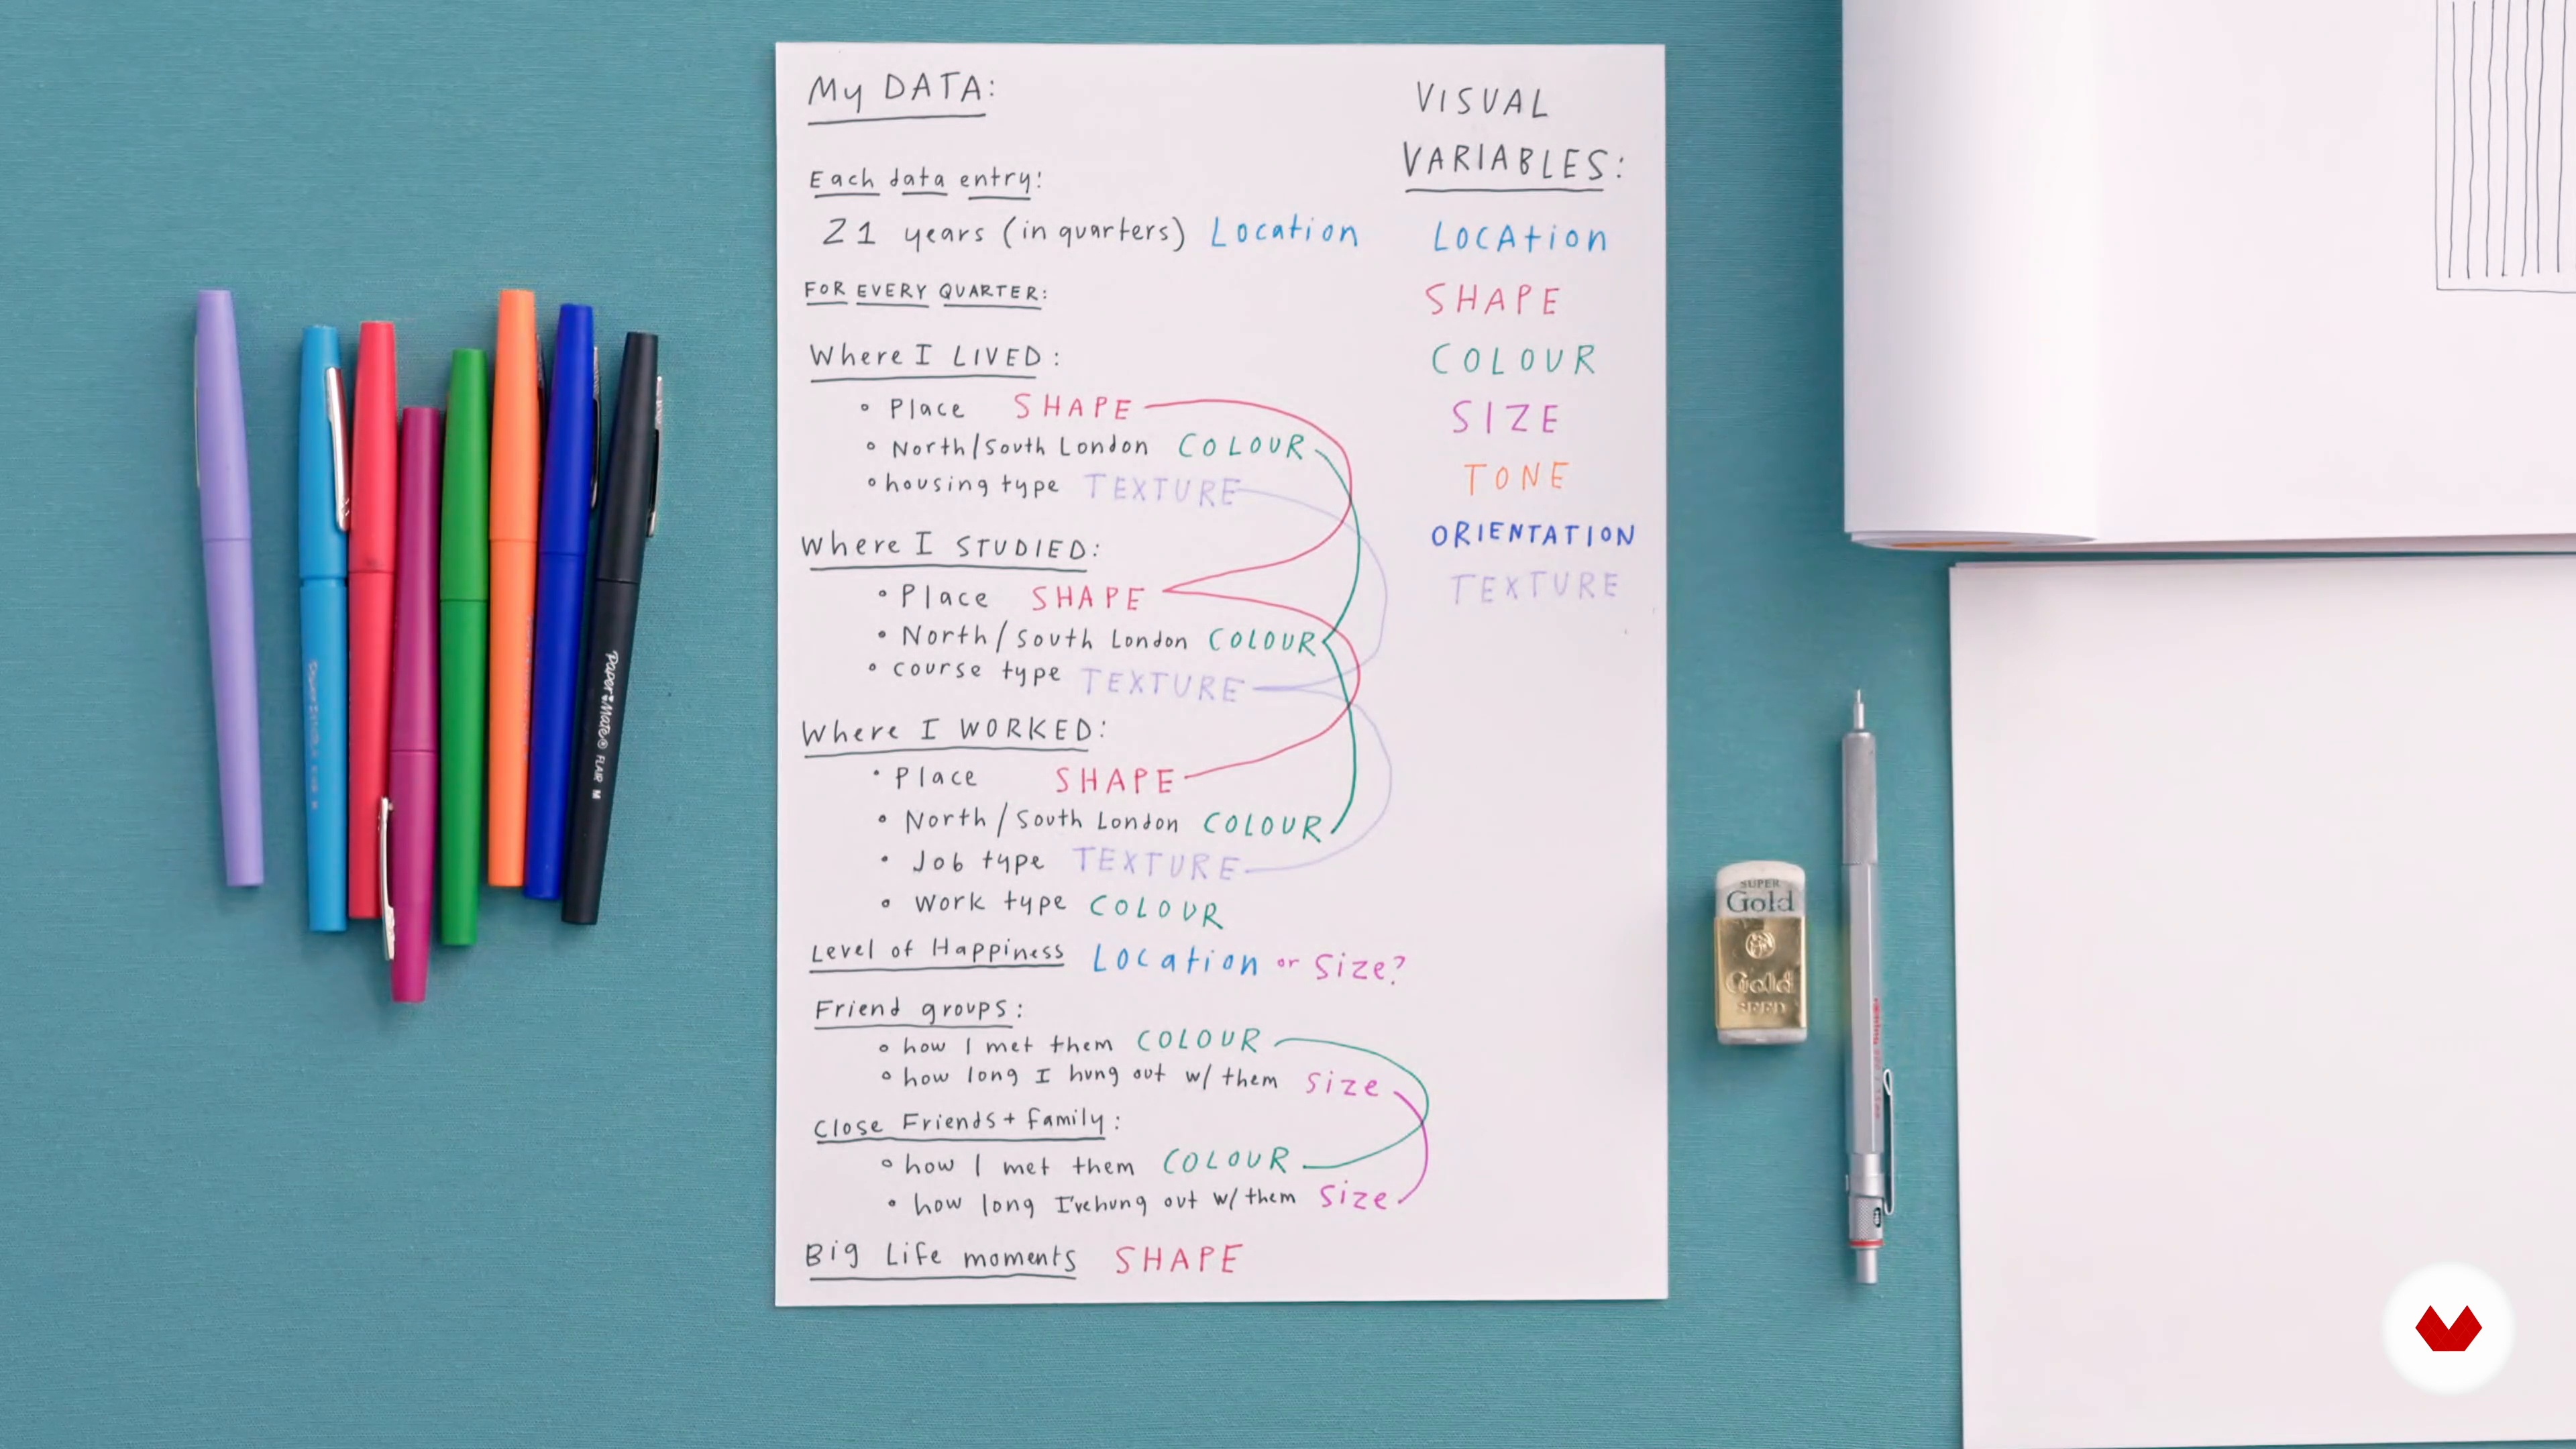 My DATA:
Each data entry:
21 years (in quarters) Location
FOR EVERY QUARTER:
Where I LIVED:
• Place SHAPE
• North/South London COLOUR
• housing type TEXTURE
Where I STUDIED:
• Place SHAPE
• North/South London COLOUR
• course type TEXTURE
Where I WORKED:
• Place SHAPE
• North/South London COLOUR
• Job type TEXTURE
• Work type COLOUR
Level of Happiness Location or Size?
Friend groups:
• how I met them COLOUR
• how long I hung out w/ them Size
Close Friends + family:
• how I met them COLOUR
• how long I've hung out w/ them Size
Big Life moments SHAPE
VISUAL
VARIABLES:
LOCATION
SHAPE
COLOUR
SIZE
TONE
ORIENTATION
TEXTURE
Paper:Mate® FLAIR M
SUPER
Gold
Gold
SEED